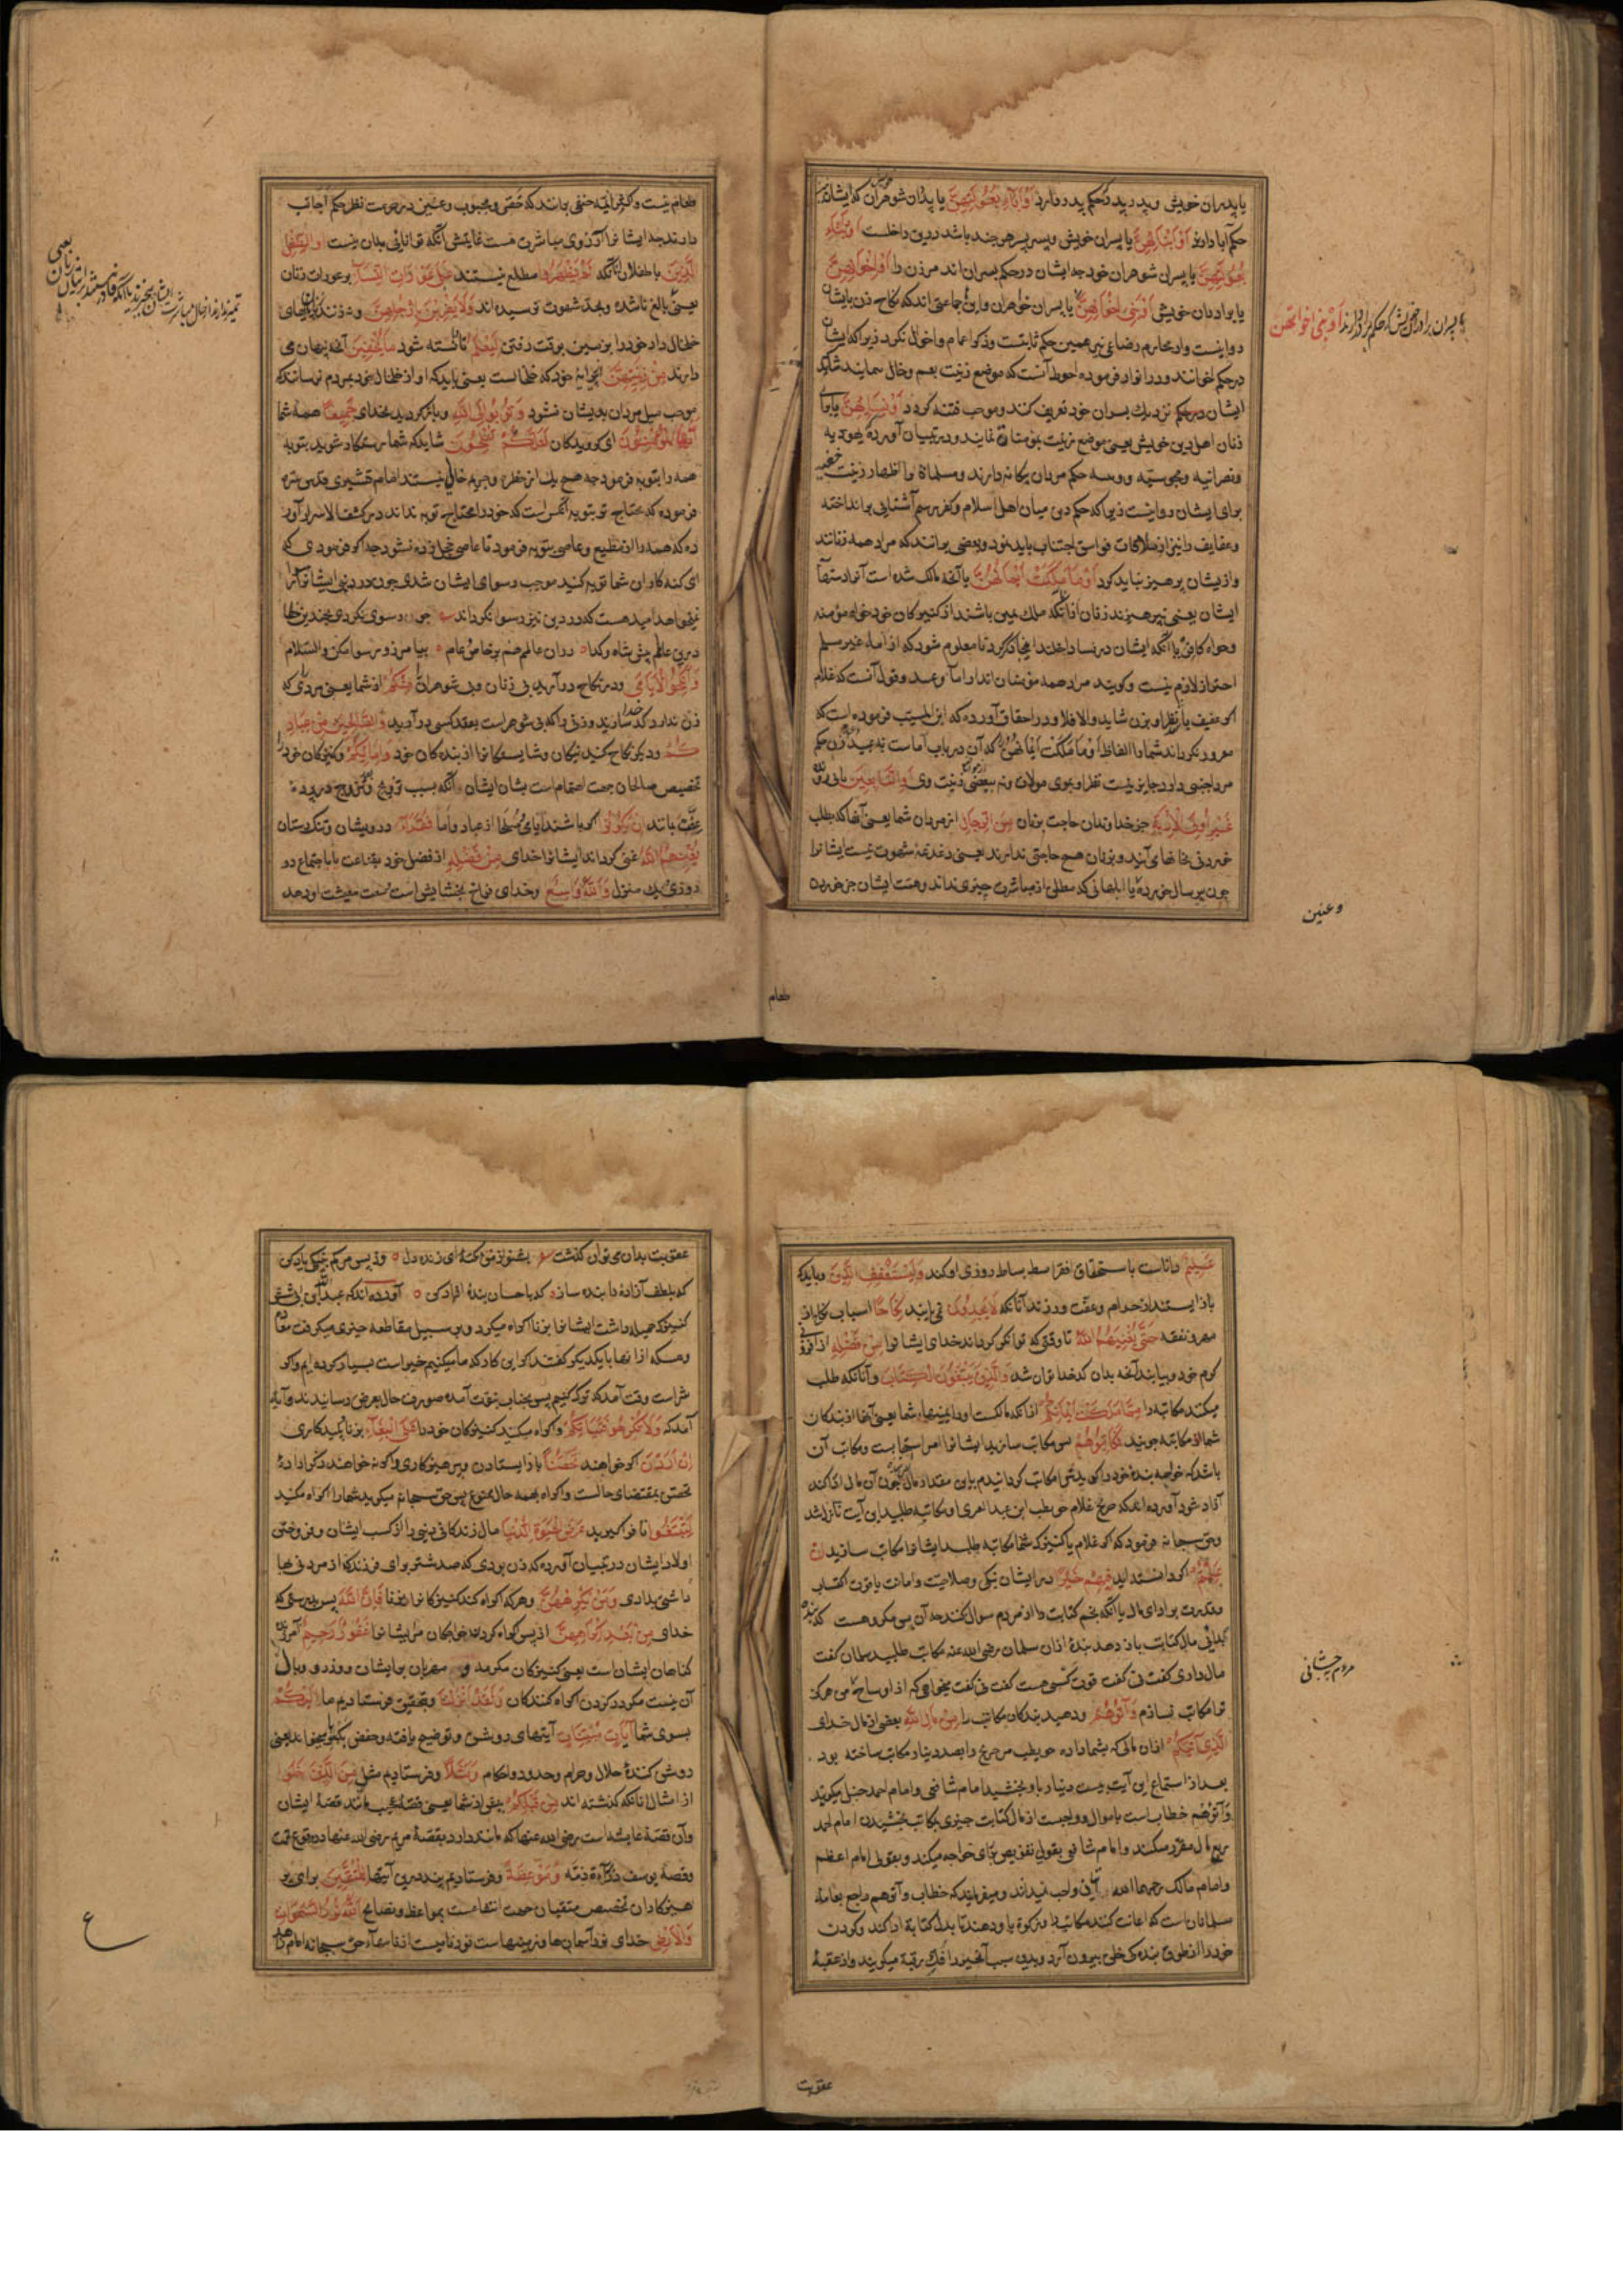 یا پدران خویش و پدر پدر در حکم پدر دارد أَوْ آبَاءِ بُعُولَتِهِنَّ یا پدران شوهران که ایشان
حکم آبا دارند أَوْ أَبْنَائِهِنَّ یا پسران خویش و پسر پسر هر چند باشد درین داخلست أَوْ أَبْنَاءِ
بُعُولَتِهِنَّ یا پسران شوهران خود چه ایشان در حکم پسران اند مر زن را أَوْ إِخْوَانِهِنَّ
یا برادران خویش أَوْ بَنِي أَخَوَاتِهِنَّ یا پسران خواهران و این جماعتی اند که نکاح زن بایشان
روا نیست و از محارم رضاعی نیز همین حکم ثابتست و ذکر اعمام و اخوال نکرد زیرا که ایشان
در حکم اخوانند و در انوار فرموده احوط آنست که موضع زینت بعم و خال ننمایند شاید که
ایشان نزدیک پسران خود تعریف کنند و موجب فتنه گردد أَوْ نِسَائِهِنَّ یا برای
زنان اهل دین خویش یعنی موضع زینت بمؤمنات نمایند و در تبیان آورده یهودیه
و نصرانیه و مجوسیه و وثنیه حکم مردان بیگانه دارند و مسلمانان را اظهار زینت خفیه
برای ایشان روا نیست زیرا که حکم دین میان اهل اسلام و کفر رسم آشنایی برانداخته
و عفایف را نیز از ملاقات فواسق اجتناب باید نمود و بعضی برانند که مراد همه زنانند
و از ایشان پرهیز نباید کرد أَوْ مَا مَلَكَتْ أَيْمَانُهُنَّ یا آنچه مالک شده است آنرا دستهای
ایشان یعنی نپرهیزند زنان از آنکه ملک یمین باشند از کنیزکان خود خواه مؤمنه
و خواه کافره با آنکه ایشان در نسا داخلند اینجا ذکر کرد تا معلوم شود که از اماء غیر مسلم
احتراز لازم نیست و گویند مراد همه مؤمنان اند از اماء و عبد و قول آنست که غلام
اگر عفیف باشد نظر او بزن شاید والا فلا و در احقاق آورده که ابن المسیب فرموده است که
مغرور نگرداند شما را الفاظ أَوْ مَا مَلَكَتْ أَيْمَانُهُنَّ که آن در باب اماست نه عبید زن حکم
مرد اجنبی دارد جایز نیست نظر او بموی مولات و نه ببعضی زینت وی أَوِ التَّابِعِينَ یا پی روان
غَيْرِ أُولِي الْإِرْبَةِ جز خداوندان حاجت بزنان مِنَ الرِّجَالِ از مردان شما یعنی آنها که بطلب
خوردنی بخانهای آیند و بزنان هیچ حاجتی ندارند یعنی دغدغه شهوت نیست ایشانرا
چون پیر سال خورده یا ابلهانی که مطلقا از مباشرت چیزی ندانند و همت ایشان جز خوردن
یا پسران برادران خویش که ایشان حکم برادران دارند أَوْ بَنِي أَخَوَاتِهِنَّ
و عنین
طعام
طعام نیست و اکثر ائمه حنفی برانند که خصی و مجبوب و عنین در حرمت نظر حکم اجانب
دارند چه ایشانرا آرزوی مباشرت هست غایتش آنکه توانایی بدان نیست أَوِ الطِّفْلِ
الَّذِينَ یا طفلان آنانکه لَمْ يَظْهَرُوا مطلع نیستند عَلَىٰ عَوْرَاتِ النِّسَاءِ بر عورات زنان
یعنی بالغ ناشده و بحد شهوت نرسیده اند وَلَا يَضْرِبْنَ بِأَرْجُلِهِنَّ و نزنند زنان پایهای
خلخال دار خود را بر زمین بوقت رفتن لِيُعْلَمَ تا دانسته شود مَا يُخْفِينَ آنچه پنهان می
دارند مِنْ زِينَتِهِنَّ از پیرایه خود که خلخالست یعنی باید که آواز خلخال خود بمردم نرسانند که
موجب میل مردان بدیشان نشود وَتُوبُوا إِلَى اللَّهِ و باز گردید بخدای جَمِيعًا همه شما
أَيُّهَ الْمُؤْمِنُونَ ای گرویدگان لَعَلَّكُمْ تُفْلِحُونَ شاید که شما رستگار شوید بتوبه
همه را بتوبه فرمود چه هیچ یک از خطره و جریمه خالی نیستند امام قشیری قدس سره
فرموده که محتاج تر بتوبه آنکس است که خود را محتاج توبه نداند در کشف الاسرار آور
ده که همه را از مطیع و عاصی بتوبه فرمود تا عاصی خجل زده نشود چه اگر فرمودی که
ای گنه کاران شما توبه کنید موجب رسوای ایشان شدی چون در دنیا ایشانرا رسوا
نمیخواهد امید هست که در دین نیز رسوا نگرداند چو رسوی نکردی بچندین خطا
درین عالم پیش شاه و گدا دران عالم هم بر خاص و عام بیامرز و رسوا مکن والسلام
وَأَنْكِحُوا الْأَيَامَىٰ و در نکاح در آرید بی زنان و بی شوهران را مِنْكُمْ از شما یعنی مردی که
زن ندارد کدخدا سازید و زنی را که بی شوهر است بعقد کسی در آرید وَالصَّالِحِينَ مِنْ عِبَادِ
كُمْ و دیگر نکاح کنید نیکان و شایستگانرا از بندگان خود وَإِمَائِكُمْ و کنیزکان خود را
تخصیص صالحان جهت اهتمام است بشان ایشان با آنکه بسبب ترویج و تزویج در پرده
عفت بمانند إِنْ يَكُونُوا اگر باشند ایامی و صلحا از عباد و اما فُقَرَاءَ درویشان و تنگدستان
يُغْنِهِمُ اللَّهُ غنی گرداند ایشانرا خدای مِنْ فَضْلِهِ از فضل خود بقناعت یا باجتماع دو
روزی یک منزل وَاللَّهُ وَاسِعٌ و خدای فراخ بخشایش است نعمت معیشت او دهد
عَلِيمٌ داناست باستحقاق فقرا بسط بساط روزی او کند وَلْيَسْتَعْفِفِ الَّذِينَ و باید که
باز ایستند از حرام و عفت ورزند آنانکه لَا يَجِدُونَ نمی یابند نِكَاحًا اسباب نکاح از
مهر و نفقه حَتَّىٰ يُغْنِيَهُمُ اللَّهُ تا وقتی که توانگر گرداند خدای ایشانرا مِنْ فَضْلِهِ از افزونی
کرم خود و بیابند آنچه بدان کدخدا توان شد وَالَّذِينَ يَبْتَغُونَ الْكِتَابَ و آنانکه طلب
میکنند مکاتبه را مِمَّا مَلَكَتْ أَيْمَانُكُمْ از آنکه مالکست او را یمینهای شما یعنی آنها از بندگان
شما که مکاتبه جویند فَكَاتِبُوهُمْ پس مکاتب سازید ایشانرا امر استحبابست و مکاتب آن
باشد که خواجه بنده خود را گوید ترا مکاتب گردانیدم باین مقدار مال چون آن مال ادا کند
آزاد شود آورده اند که صبیح غلام حویطب ابن عبدالعزی از و مکاتبه طلبید این آیت نازل شد
و حق سبحانه فرمود که اگر غلام یا کنیزک شما مکاتبه طلبد ایشانرا مکاتب سازید إِنْ
عَلِمْتُمْ اگر دانسته اید فِيهِمْ خَيْرًا در ایشان نیکی و صلاحیت و امانت یا قوت اکتساب
و قدرت بر ادای مال یا آنکه نجم کتابت را از مردم سوال نکند چه آن پس مکروهست که بنده
بگدایی مال کتابت باز دهد بنده از آن سلمان رضی الله عنه مکاتبه طلبید سلمان گفت
مال داری گفت نی گفت قوت کسبی هست گفت نی گفت میخواهی که از اوساخ مردم هرگز
ترا مکاتب نسازم وَآتُوهُمْ و دهید بندگان مکاتب را مِنْ مَالِ اللَّهِ بعضی از مال خدای
الَّذِي آتَاكُمْ از آن مالی که بشما داده حویطب مر صبیح را بصد دینار مکاتب ساخته بود
بعد از استماع این آیت بیست دینار باو بخشید امام شافعی و امام احمد حنبل میگویند
وَآتُوهُمْ خطاب است باموال و واجبست از مال کتابت چیزی بمکاتب بخشیدن امام احمد
ربع مال مقرر میکند و امام شافعی بقولی تفویض برای خواجه میکند و بقولی امام اعظم
و امام مالک رحمهما الله این واجب نمیدانند و میفرمایند که خطاب وآتوهم راجع بعامه
مسلمانان است که اعانت کنند مکاتب را و زکوة باو دهند تا بدل کتابة ادا کند و گردن
خود را از طوق بندگی خلق بیرون آرد و بدین سبب آنچنین را فک رقبة میگویند و از عقبه
عقوبت
عقوبت بدان می توان گذشت بشنو از من نکته ای زنده دل وز پس مرگم بنیکی یاد کن
که بلطف آزادۀ را بنده ساز که باحسان بندۀ آزاد کن آورده اند که عبدالله بن ابی شش
کنیزک جمیله داشت ایشانرا بزنا اکراه میکرد و بر سبیل مقاطعه چیزی میگرفت معاذه
و مسیکه از آنها با یکدیگر گفتند اگر این کار که ما میکنیم خیر است بسیار کرده ایم و اگر
شر است وقت آمد که ترک کنیم پس بجناب نبوت آمده صورت حال بعرض رسانیدند و آیه
آمد که وَلَا تُكْرِهُوا فَتَيَاتِكُمْ و اکراه مکنید کنیزکان خود را عَلَى الْبِغَاءِ بر زنا و پلید کاری
إِنْ أَرَدْنَ اگر خواهند تَحَصُّنًا باز ایستادن و پرهیزکاری و اگر نه خواهند ذکر اراده
تحصن بمقتضای حالست و اکراه بهمه حال ممنوع پس حق سبحانه میگوید شما را اکراه مکنید
لِتَبْتَغُوا تا فرا گیرید عَرَضَ الْحَيَاةِ الدُّنْيَا مال زندگانی دنیی را از کسب ایشان و فروختن
اولاد ایشان در تبیان آورده که زن بودی که صد شتر برای فرزند که از مرد زنی بها
داشتی بدادی وَمَنْ يُكْرِهْهُنَّ و هر که اکراه کند کنیزکانرا بزنا فَإِنَّ اللَّهَ پس بدرستی که
خدای مِنْ بَعْدِ إِكْرَاهِهِنَّ از پس اکراه کردن خواجگان مر ایشانرا غَفُورٌ رَحِيمٌ آمرزنده
گناهان ایشان است یعنی کنیزکان مکرهه و مهربان بر ایشان و وزر و وبال
آن نیست مگر در گردن اکراه کنندگان وَلَقَدْ أَنْزَلْنَا و بتحقیق فرستادیم ما إِلَيْكُمْ
بسوی شما آيَاتٍ مُبَيِّنَاتٍ آیتهای روشن و توضیح یافته و حفص بکسر یا میخواند یعنی
روشن کنندۀ حلال و حرام و حدود و احکام وَمَثَلًا و فرستادیم مثلی مِنَ الَّذِينَ خَلَوْا
از امثال آنانکه گذشته اند مِنْ قَبْلِكُمْ پیش از شما یعنی قصه عجیب مانند قصۀ ایشان
و آن قصۀ عایشه است رضی الله عنها که مانند دارد بقصۀ مریم رضی الله عنها در وقوع تهمت
و قصه یوسف وَمَوْعِظَةً و فرستادیم پند درین آیتها لِلْمُتَّقِينَ برای پر
هیزکاران تخصیص متقیان جهت انتفاعست بمواعظ و نصایح اللَّهُ نُورُ السَّمَاوَاتِ
وَالْأَرْضِ خدای نور آسمانها و زمینهاست نور نامیست از نامهاء حق سبحانه امام